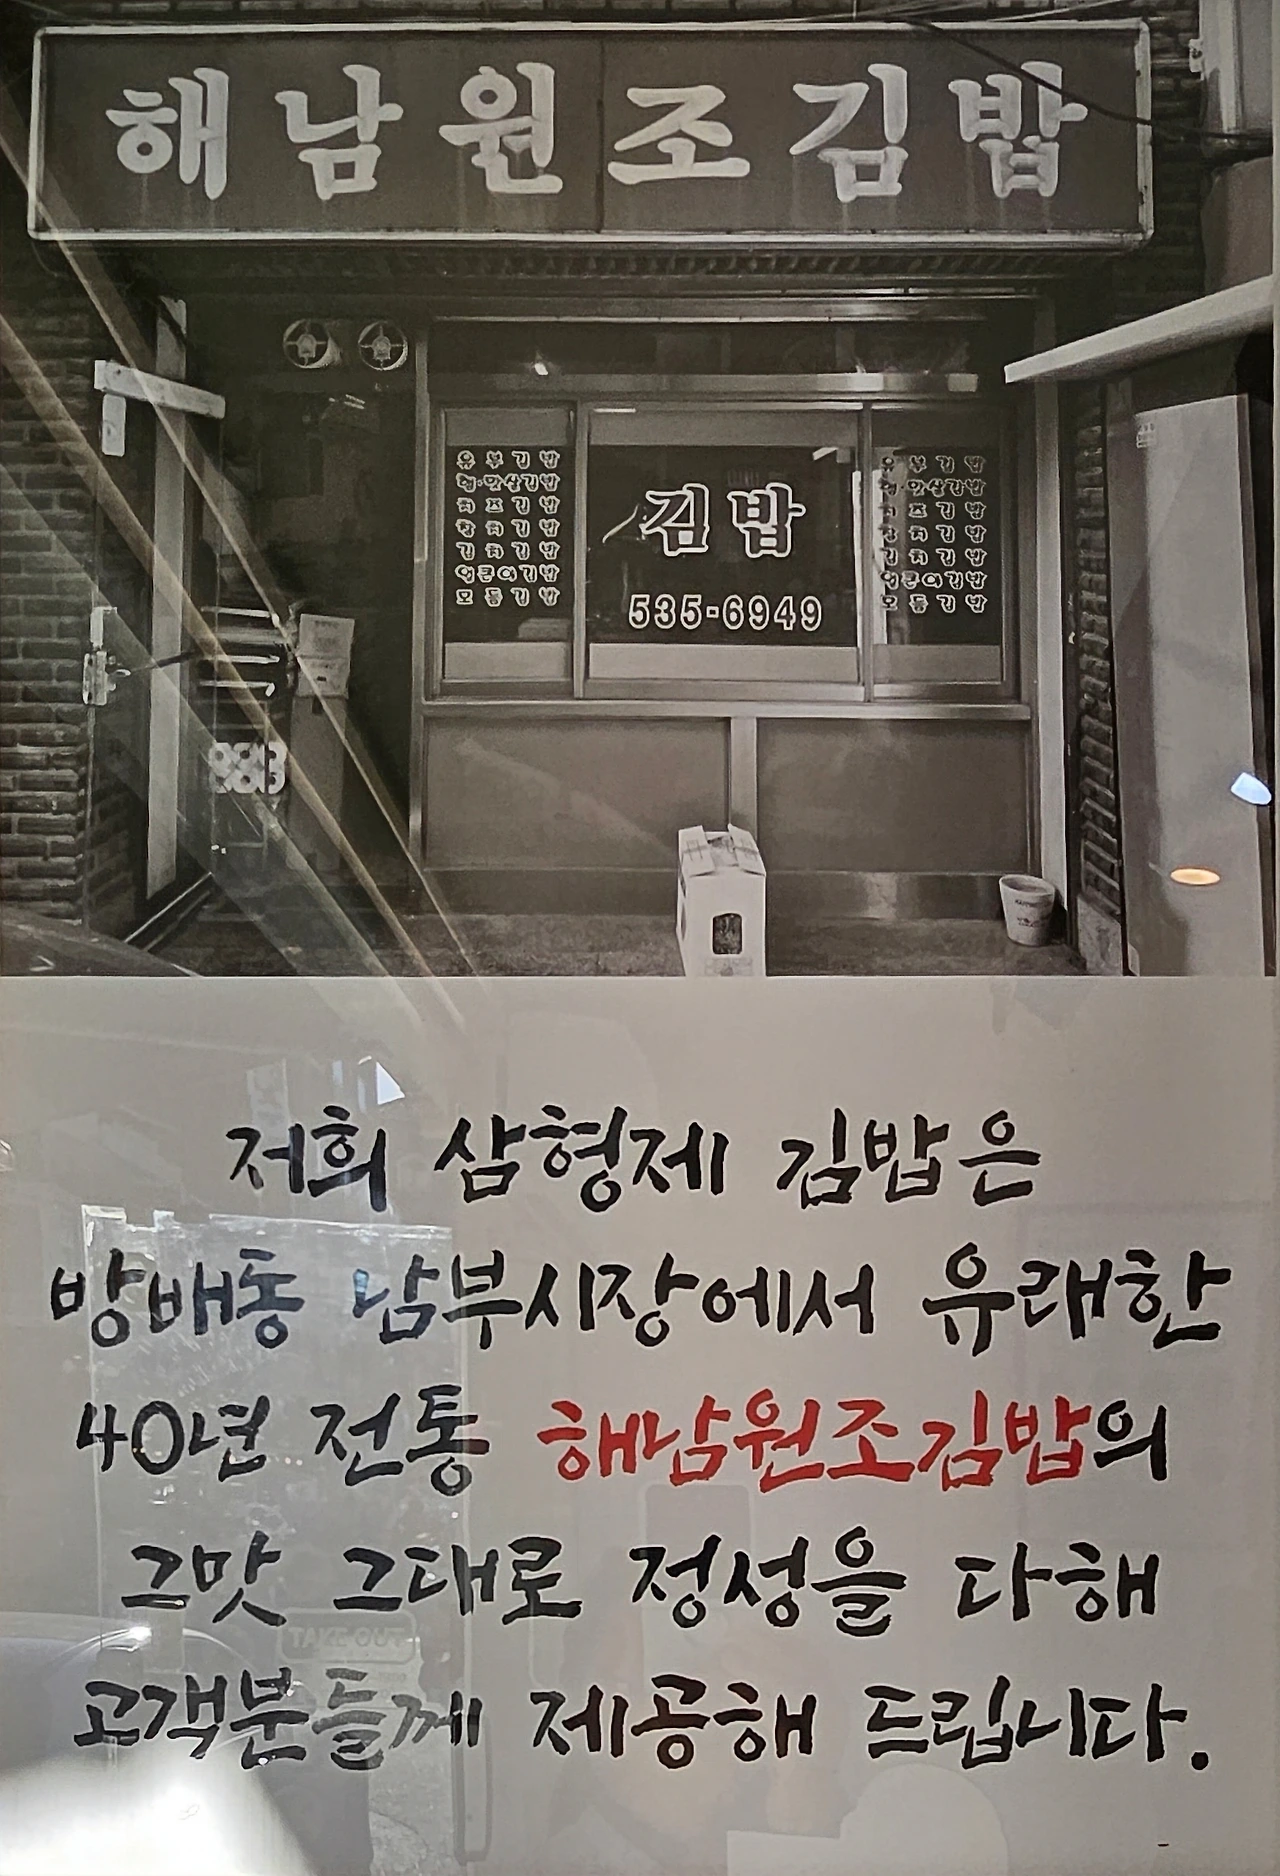 해남원조김밥
유부김밥
햄·맛살김밥
치즈김밥
참치김밥
김치김밥
얼큰이김밥
모듬김밥
김밥
535-6949
유부김밥
햄·맛살김밥
치즈김밥
참치김밥
김치김밥
얼큰이김밥
모듬김밥
저희 삼형제 김밥은
방배동 남부시장에서 유래한
40년 전통 해남원조김밥의
그맛 그대로 정성을 다해
TAKE-OUT
고객분들께 제공해 드립니다.